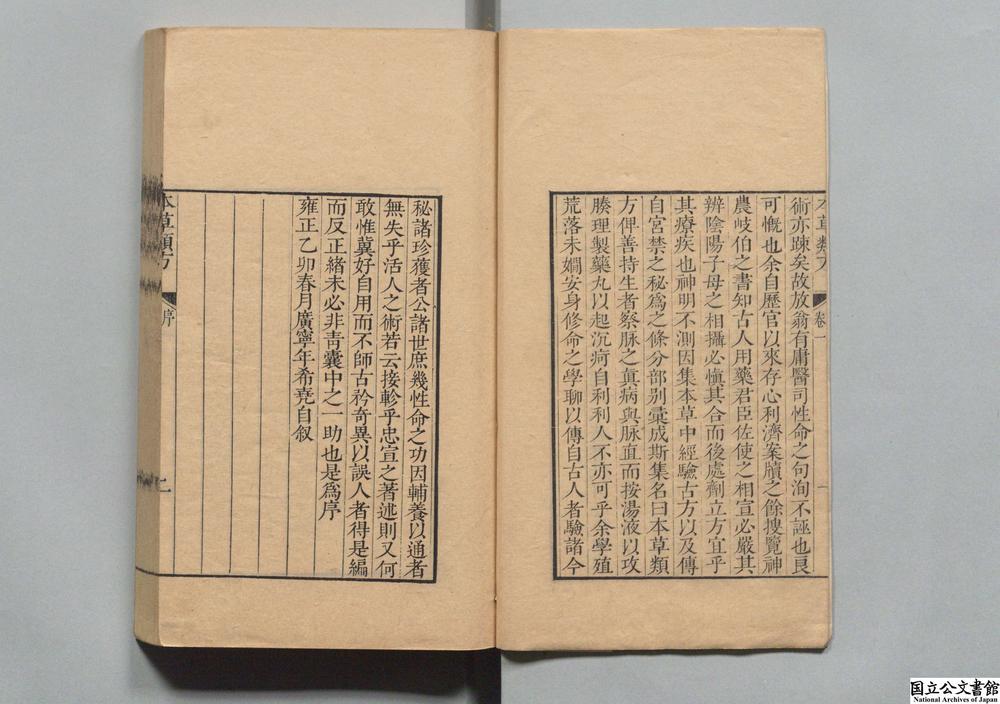 本草類方
卷一
一
術亦踈矣故放翁有庸醫司性命之句洵不誣也良
可慨也余自歷官以來存心利濟案牘之餘搜覽神
農岐伯之書知古人用藥君臣佐使之相宣必嚴其
辨陰陽子母之相攝必愼其合而後處劑立方宜乎
其療疾也神明不測因集本草中經驗古方以及傳
自宮禁之秘爲之條分部别彙成斯集名曰本草類
方俾善持生者察脉之眞病與脉直而按湯液以攻
腠理製藥丸以起沉疴自利利人不亦可乎余學殖
荒落未嫺安身修命之學聊以傳自古人者驗諸今
秘諸珍獲者公諸世庶幾性命之功因輔養以通者
無失乎活人之術若云接軫乎忠宣之著述則又何
敢惟冀好自用而不師古矜奇異以誤人者得是編
而反正緒未必非靑囊中之一助也是爲序
雍正乙卯春月廣寧年希堯自叙
本草類方
序
二
国立公文書館
National Archives of Japan